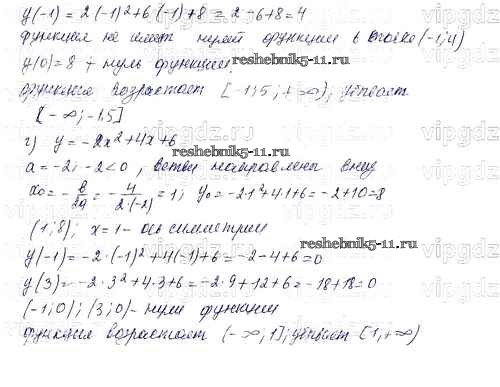 y(-1) = 2(-1)²+6·(-1)+8 = 2-6+8=4
функция не имеет нулей функции в точке (-1;4)
y(0)=8 - нуль функции.
функция возрастает [-1,5; +∞), убывает
[-∞; -1,5]
г) y = -2x²+4x+6
a = -2; -2<0, ветви направлены вниз
x₀ = -в/2a = -4/2·(-2) = 1; y₀ = -2·1²+4·1+6 = -2+10=8
(1;8); x=1 - ось симметрии
y(-1) = -2·(-1)²+4(-1)+6 = -2-4+6=0
y(3) = -2·3²+4·3+6 = -2·9+12+6 = -18+18=0
(-1;0); (3;0) - нули функции
функция возрастает (-∞,1]; убывает [1,+∞)
www.reshebnik5-11.ru
www.reshebnik5-11.ru
www.reshebnik5-11.ru
vipgdz.ru